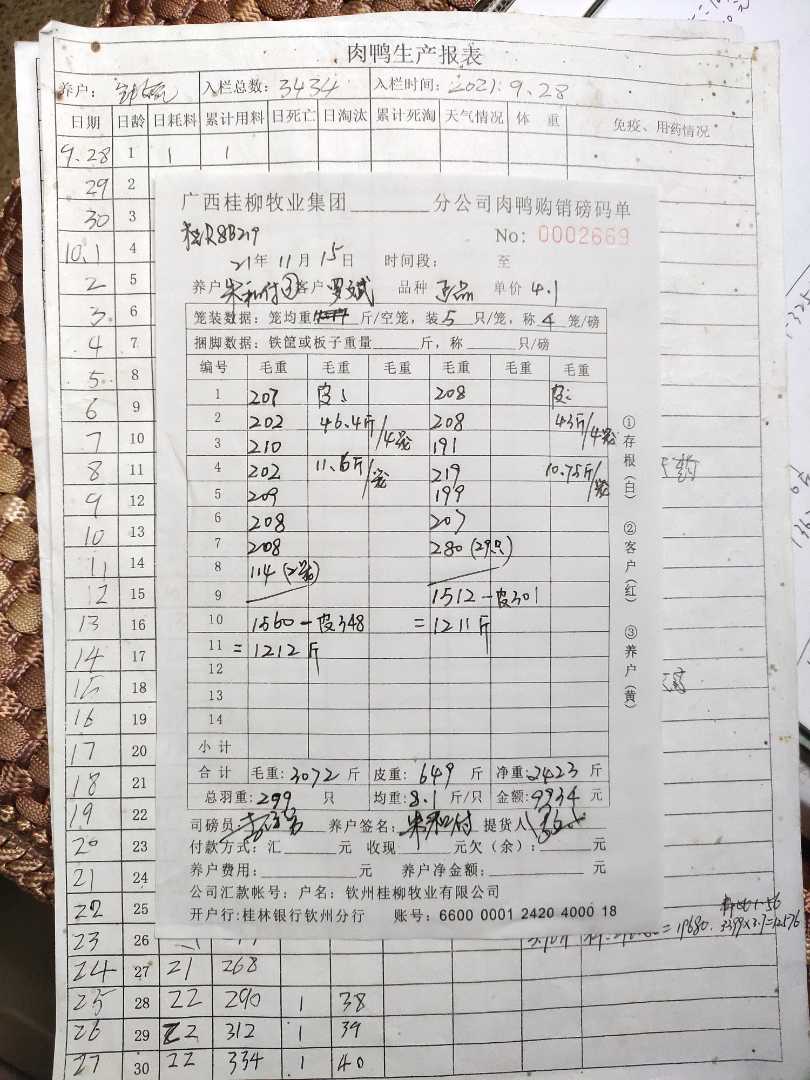 肉鸭生产报表
养户: 入栏总数: 3434 入栏时间: 2021.9.28
日期 日龄 日耗料 累计用料 日死亡 日淘汰 累计死淘 天气情况 体 重 免疫、用药情况
9.28 1 1 1
29 2
30 3
10.1 4
2 5
3 6
4 7
5 8
6 9
7 10
8 11
9 12
10 13
11 14
12 15
13 16
14 17
15 18
16 19
17 20
18 21
19 22
20 23
21 24
22 25
23 26
24 27 21 268
25 28 22 290 1 38
26 29 22 312 1 39
27 30 22 334 1 40
=19680. 3399×3.7=12576
广西桂柳牧业集团 分公司肉鸭购销磅码单
No: 0002669
21年 11月 15日 时间段: 至
养户 朱和付 客户 罗斌 品种 正品 单价 4.1
笼装数据: 笼均重 斤/空笼, 装 5 只/笼, 称 4 笼/磅
捆脚数据: 铁筐或板子重量 斤, 称 只/磅
编号 毛重 毛重 毛重 毛重 毛重 毛重
1 207 皮: 208 皮:
2 202 46.4斤/4笼 208 43斤/4笼
3 210 191
4 202 11.6斤/笼 219 10.75斤/笼
5 209 199
6 208 207
7 208 280 (29只)
8 114 (2笼)
9 1512-皮301
10 1560-皮348 =1211斤
11 =1212斤
12
13
14
小计
合计 毛重: 3072 斤 皮重: 649 斤 净重: 2423 斤
总羽重: 299 只 均重: 8.1 斤/只 金额: 9934 元
司磅员 养户签名: 朱和付 提货人
付款方式: 汇 元 收现 元欠(余): 元
养户费用: 元 养户净金额: 元
公司汇款帐号: 户名: 钦州桂柳牧业有限公司
开户行: 桂林银行钦州分行 账号: 6600 0001 2420 4000 18
①存根(白) ②客户(红) ③养户(黄)